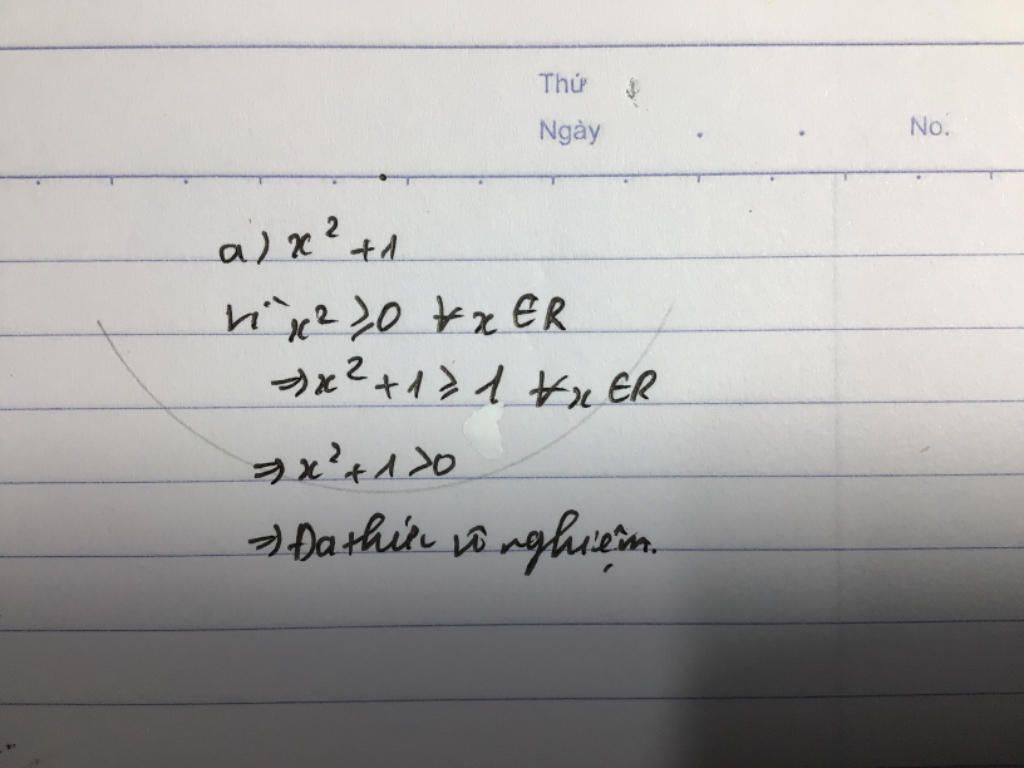 Thứ
Ngày . . No.
a) x² + 1
Vì x² ⩾ 0 ∀x ∈ R
⇒ x² + 1 ⩾ 1 ∀x ∈ R
⇒ x² + 1 > 0
⇒ Đa thức vô nghiệm.